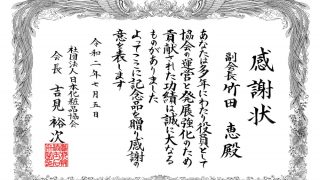 感謝状
副会長 竹田 恵 殿
あなたは多年にわたり役員として
協会の運営と発展強化のため
貢献された功績は誠に大なる
ものがありました
よってここに記念品を贈り感謝の
意を表します
令和二年七月五日
社団法人日本化粧品協会
会長 吉見 裕次